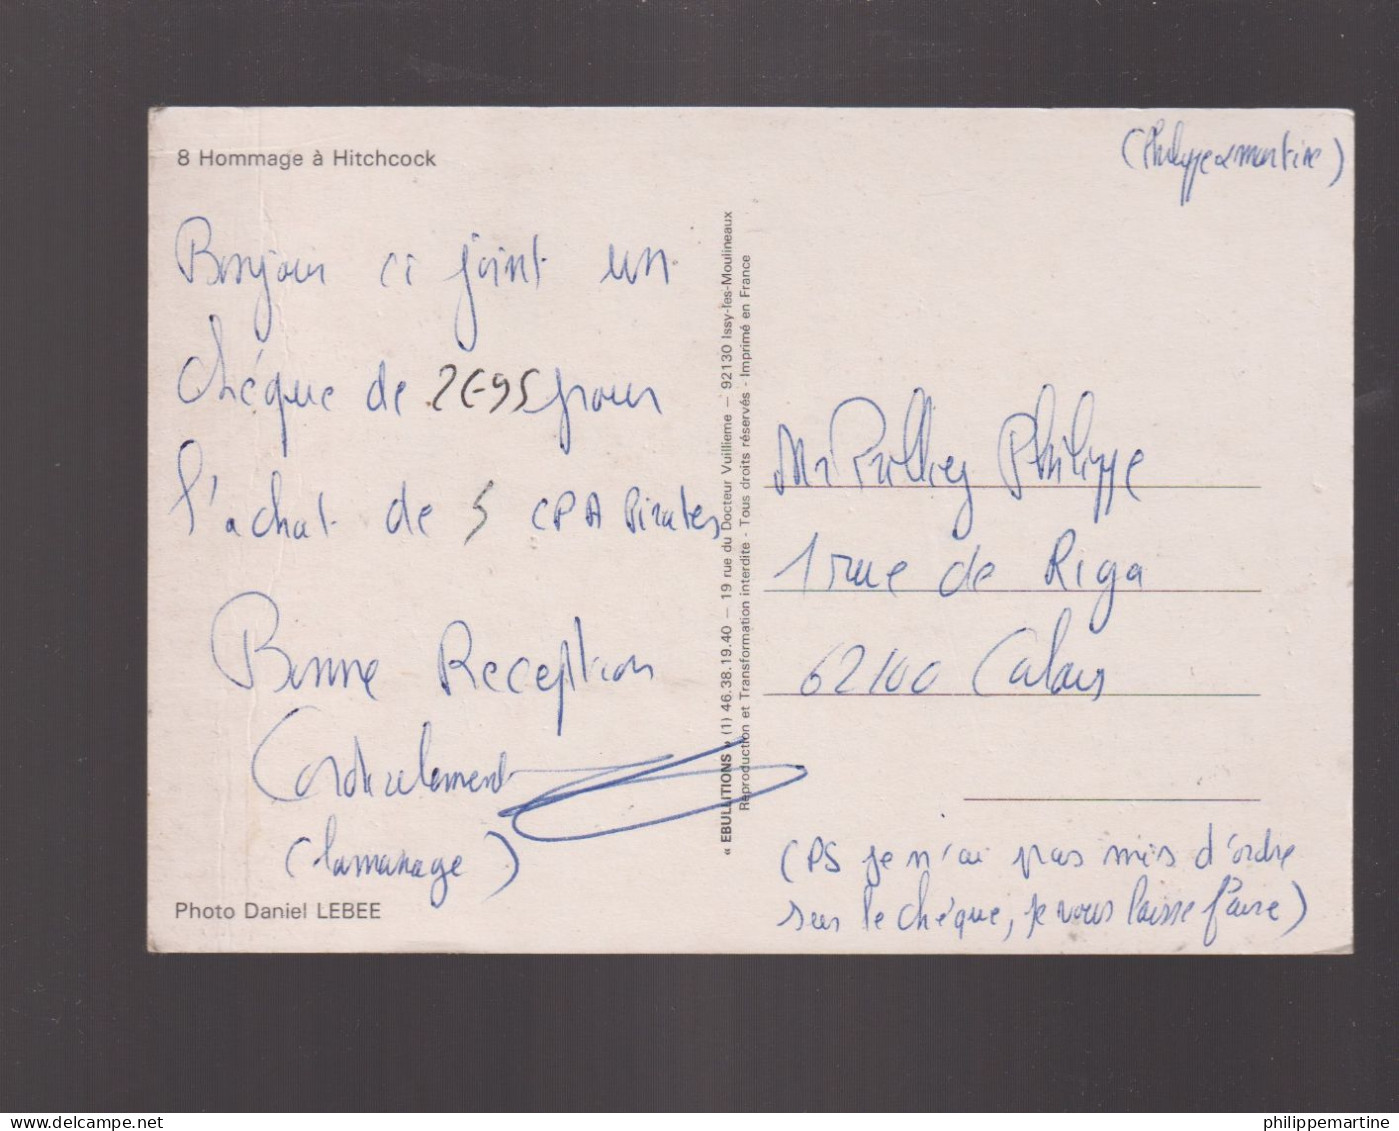 8 Hommage à Hitchcock
(Philippe & martine)
Bonjour ci joint un
chéque de 2€95 pour
l'achat de 5 CPA Pirates
Bonne Reception
Cordialement
(lamanage)
Photo Daniel LEBEE
« EBULLITIONS » (1) 46.38.19.40 — 19 rue du Docteur Vuillieme — 92130 Issy-les-Moulineaux
Reproduction et Transformation interdite - Tous droits réservés - Imprimé en France
Mr Philippe
1 rue de Riga
62100 Calais
(PS je n'ai pas mis d'ordre
sur le chéque, je vous laisse faire)
philippemartine